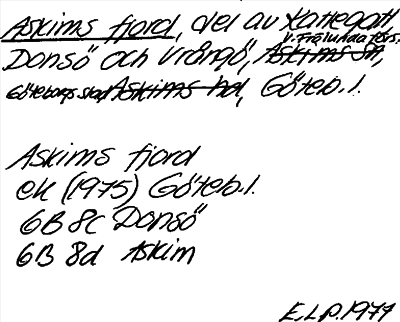 Askims fjord, del av Kattegatt,
V. Frölunda förs.
Donsö och Vrångö, Askims Sn,
Göteborgs stad Askims hd, Göteb. l.
Askims fjord
ek (1975) Göteb. l.
6B 8c Donsö
6B 8d Askim
E.L.P. 1977